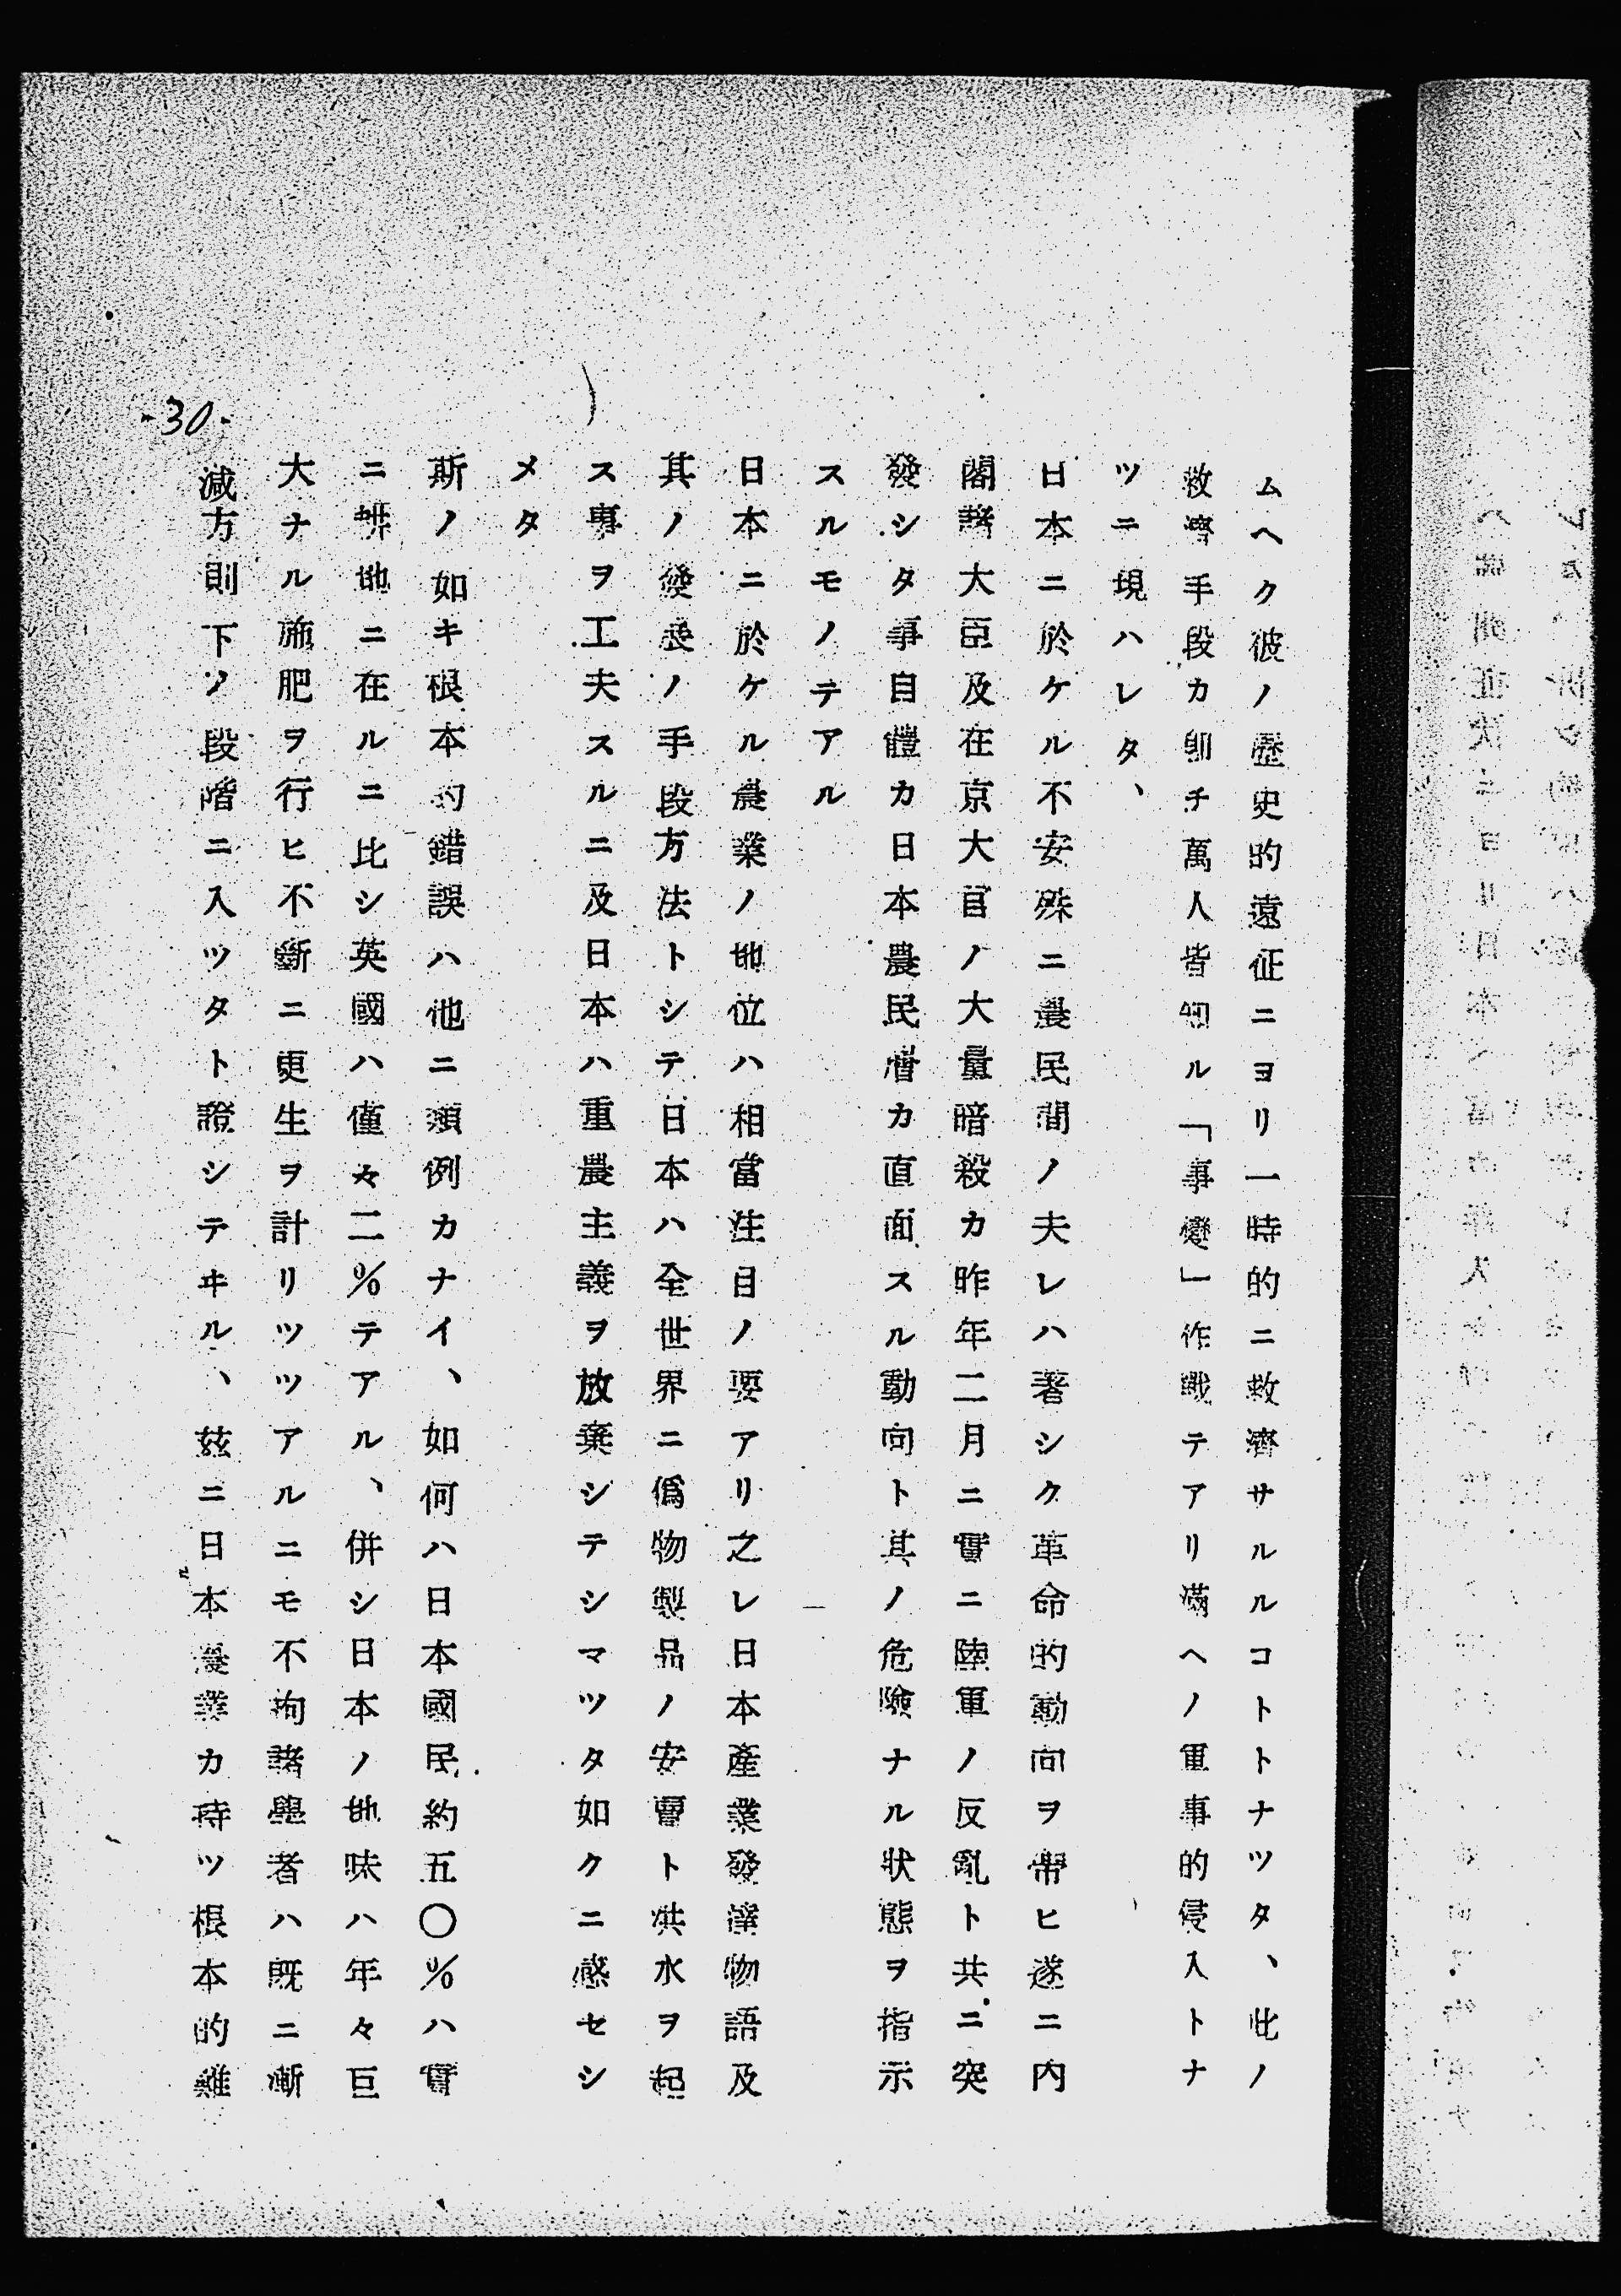 ムヘク彼ノ歷史的遠征ニヨリ一時的ニ救濟サルルコトトナツタ、此ノ
救濟手段カ卽チ萬人皆知ル「事變」作戰テアリ滿ヘノ軍事的侵入トナ
ツニ現ハレタ、
日本ニ於ケル不安殊ニ農民間ノ夫レハ著シク革命的動向ヲ帶ヒ遂ニ內
閣諸大臣及在京大官ノ大量暗殺カ昨年二月ニ實ニ陸軍ノ反亂ト共ニ突
發シタ事自體カ日本農民層カ直面スル動向ト其ノ危險ナル狀態ヲ指示
スルモノテアル
日本ニ於ケル農業ノ地位ハ相當注目ノ要アリ之レ日本產業發達物語及
其ノ發展ノ手段方法トシテ日本ハ全世界ニ僞物製品ノ安賣ト洪水ヲ起
ス專ヲ工夫スルニ及日本ハ重農主義ヲ放棄シテシマツタ如クニ感セシ
メタ
斯ノ如キ根本的錯誤ハ他ニ類例カナイ、如何ハ日本國民約五〇%ハ實
ニ耕地ニ在ルニ比シ英國ハ僅々二%テアル、併シ日本ノ地味ハ年々巨
大ナル施肥ヲ行ヒ不斷ニ更生ヲ計リツツアルニモ不拘諸學者ハ旣ニ漸
減方則下ノ段階ニ入ツタト證シテヰル、茲ニ日本農業カ持ツ根本的難
-30-